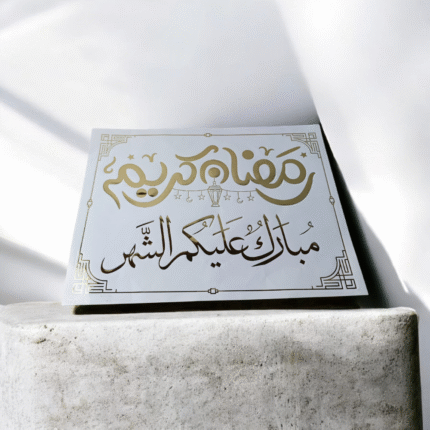 رمضان كريم
مُبارَكٌ عَلَيكُم الشَّهر